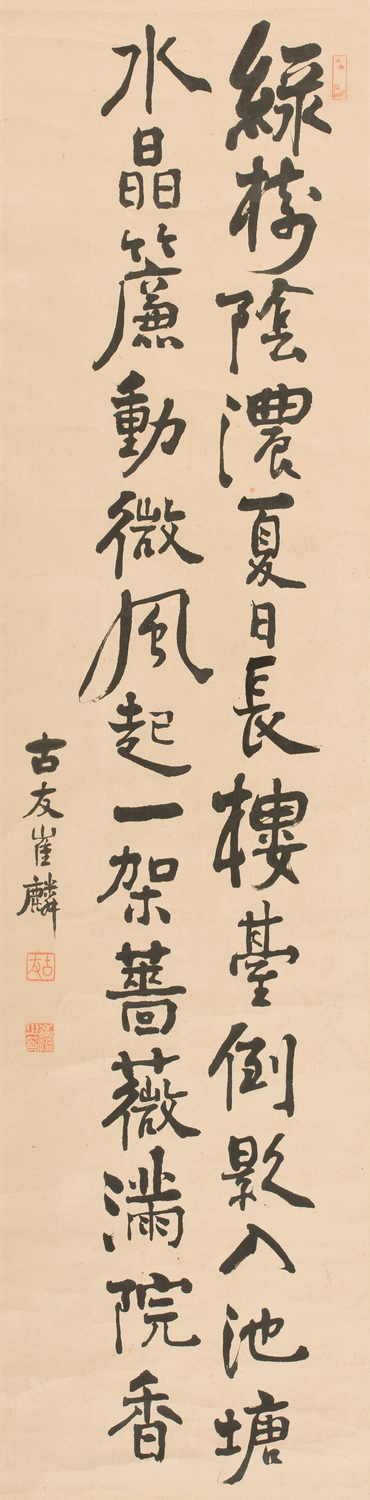 綠樹陰濃夏日長樓臺倒影入池塘
水晶簾動微風起一架薔薇滿院香
古友崔麟
古友